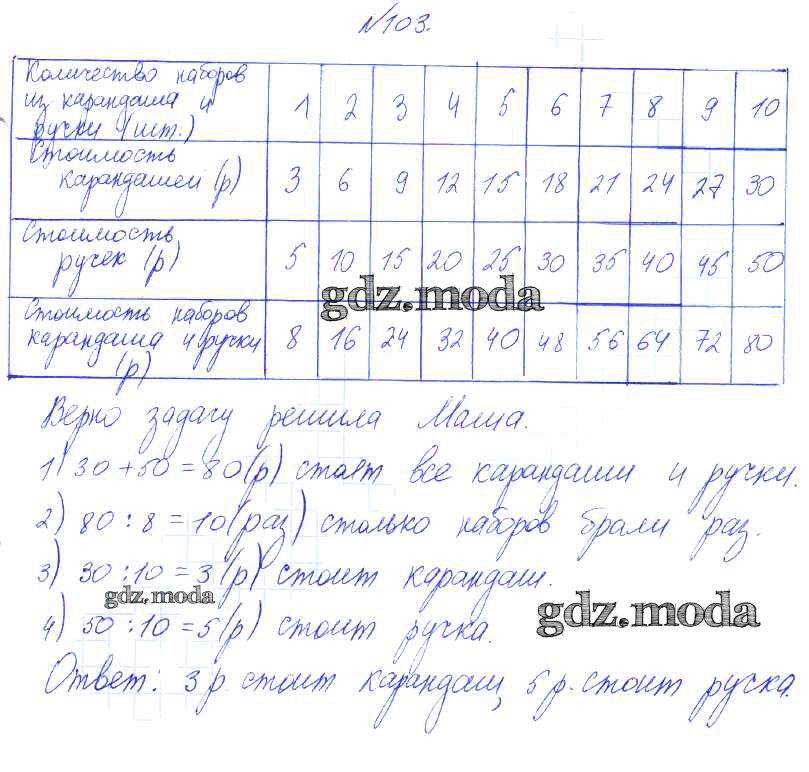 №103.
Количество наборов
из карандаша и
ручки (шт.) 1 2 3 4 5 6 7 8 9 10
Стоимость
карандашей (р) 3 6 9 12 15 18 21 24 27 30
Стоимость
ручек (р) 5 10 15 20 25 30 35 40 45 50
gdz.moda
Стоимость наборов
карандаша и ручки 8 16 24 32 40 48 56 64 72 80
(р)
Верно задачу решила Маша.
1) 30 + 50 = 80 (р) стоят все карандаши и ручки.
2) 80 : 8 = 10 (раз) столько наборов брали раз.
3) 30 : 10 = 3 (р) стоит карандаш.
gdz.moda
gdz.moda
4) 50 : 10 = 5 (р) стоит ручка.
Ответ: 3 р. стоит карандаш, 5 р. стоит ручка.